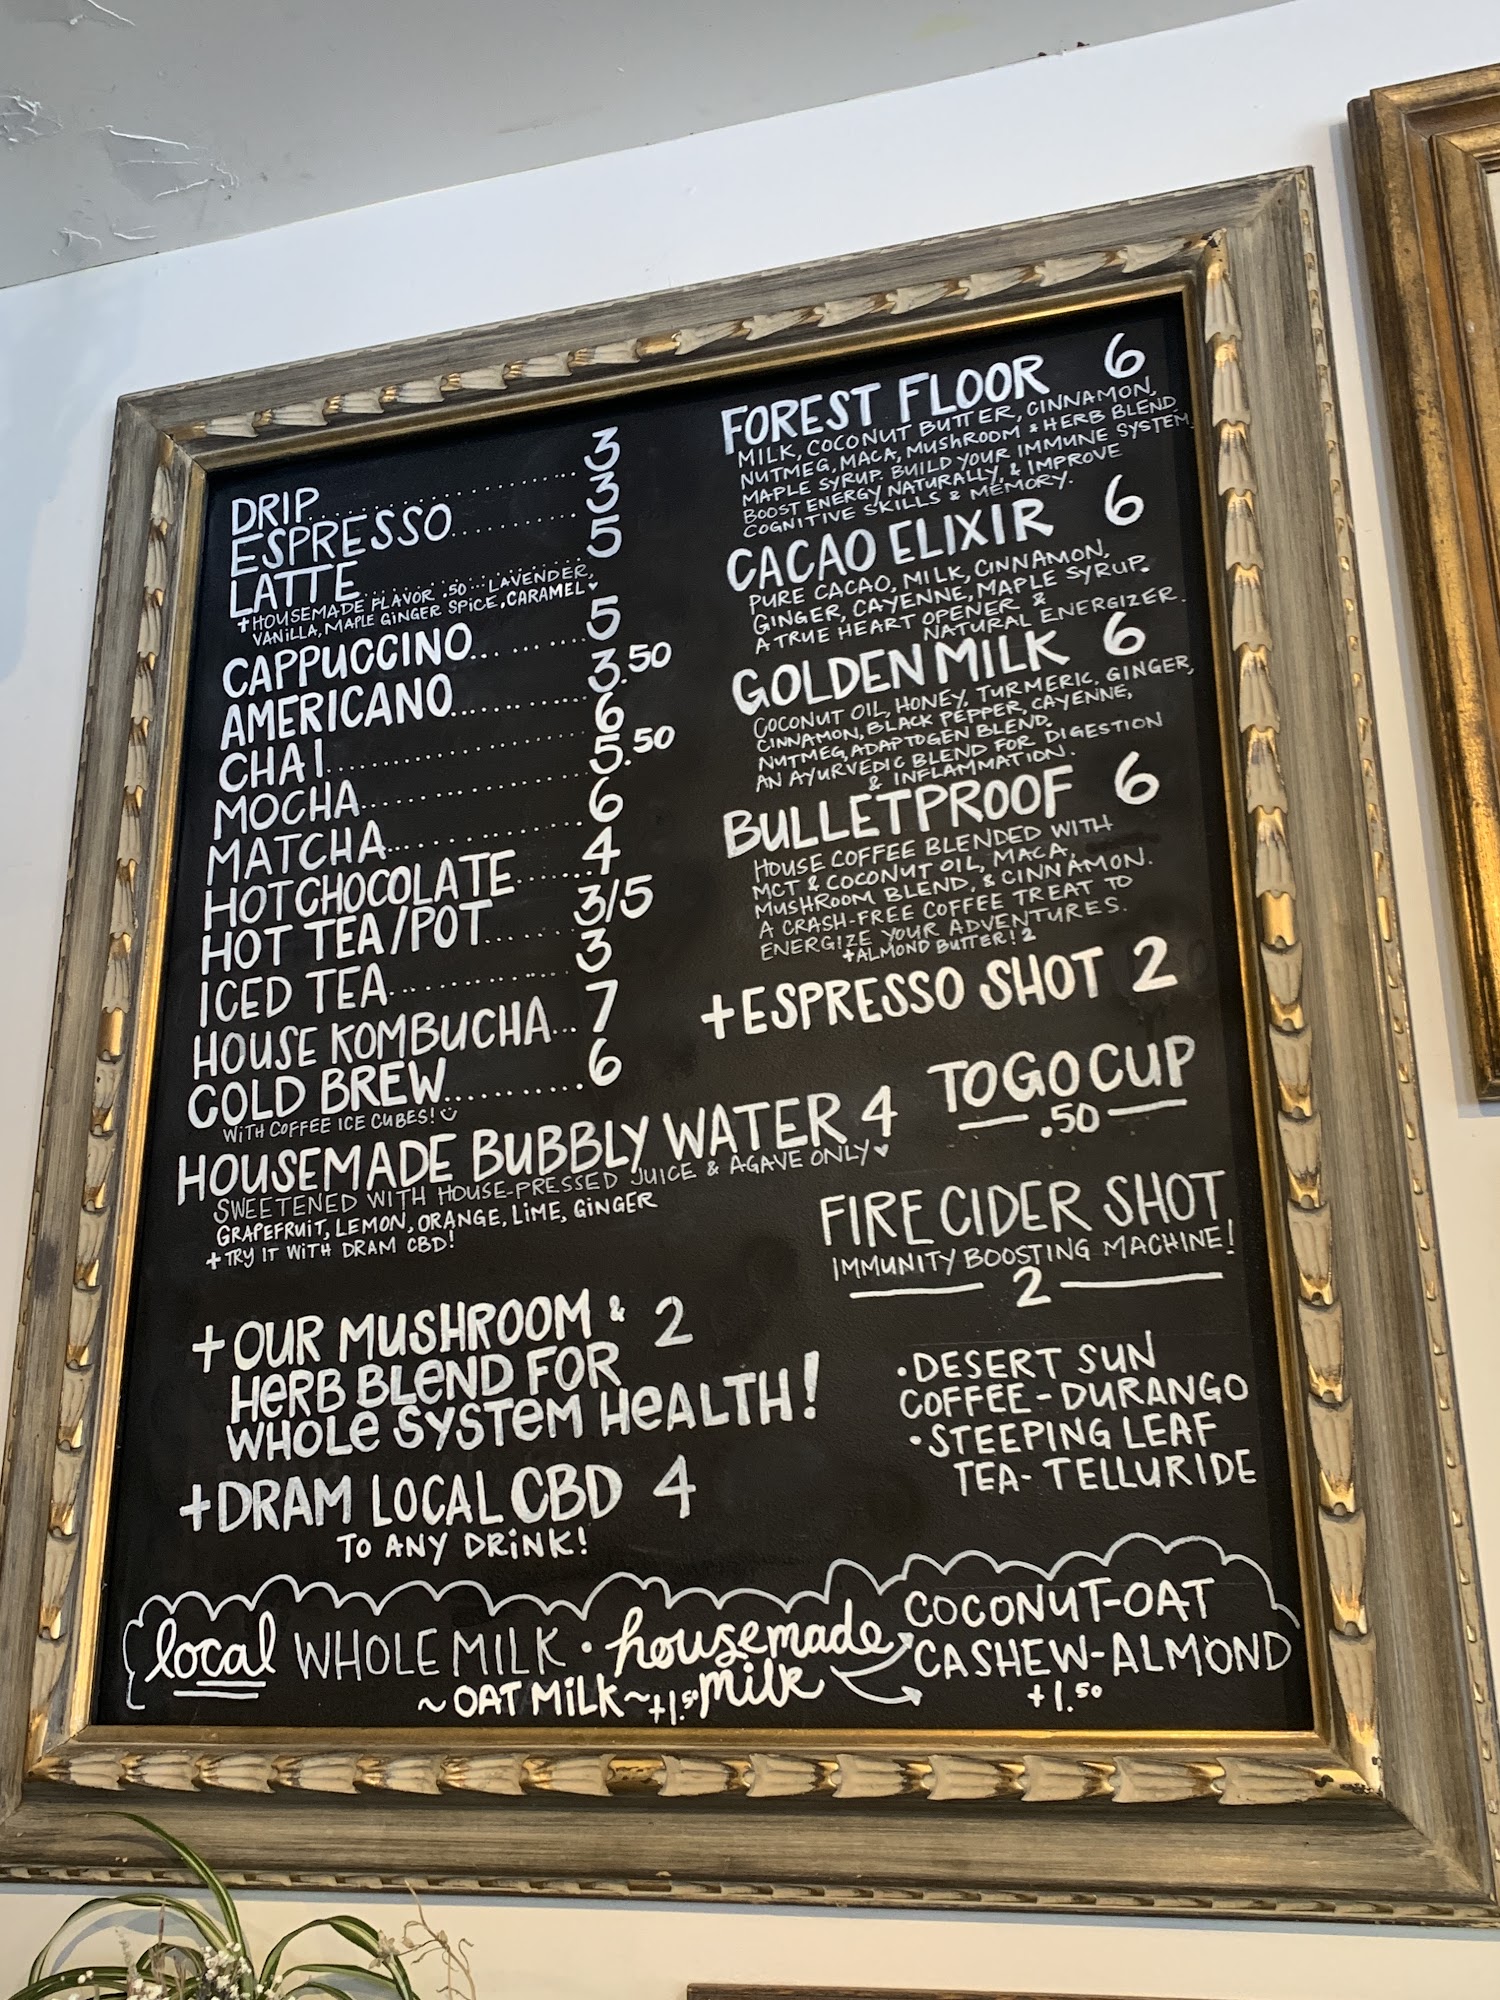 DRIP.................... 3
ESPRESSO.......... 3
LATTE................. 5
+HOUSEMADE FLAVOR .50... LAVENDER,
VANILLA, MAPLE GINGER SPICE, CARAMEL ♥
CAPPUCCINO............ 5
AMERICANO............ 3.50
CHAI.................. 6
MOCHA................ 5.50
MATCHA............... 6
HOT CHOCOLATE...... 4
HOT TEA/POT........ 3/5
ICED TEA............. 3
HOUSE KOMBUCHA... 7
COLD BREW.......... 6
WITH COFFEE ICE CUBES! ☺
HOUSEMADE BUBBLY WATER 4
SWEETENED WITH HOUSE-PRESSED JUICE & AGAVE ONLY ♥
GRAPEFRUIT, LEMON, ORANGE, LIME, GINGER
+ TRY IT WITH DRAM CBD!
+ OUR MUSHROOM & 2
HERB BLEND FOR
WHOLE SYSTEM HEALTH!
+ DRAM LOCAL CBD 4
TO ANY DRINK!
FOREST FLOOR 6
MILK, COCONUT BUTTER, CINNAMON,
NUTMEG, MACA, MUSHROOM & HERB BLEND,
MAPLE SYRUP. BUILD YOUR IMMUNE SYSTEM,
BOOST ENERGY NATURALLY, & IMPROVE
COGNITIVE SKILLS & MEMORY.
CACAO ELIXIR 6
PURE CACAO, MILK, CINNAMON,
GINGER, CAYENNE, MAPLE SYRUP.
A TRUE HEART OPENER &
NATURAL ENERGIZER.
GOLDEN MILK 6
COCONUT OIL, HONEY, TURMERIC, GINGER,
CINNAMON, BLACK PEPPER, CAYENNE,
NUTMEG, ADAPTOGEN BLEND,
AN AYURVEDIC BLEND FOR DIGESTION
& INFLAMMATION.
BULLETPROOF 6
HOUSE COFFEE BLENDED WITH
MCT & COCONUT OIL, MACA,
MUSHROOM BLEND, & CINNAMON.
A CRASH-FREE COFFEE TREAT TO
ENERGIZE YOUR ADVENTURES.
+ALMOND BUTTER! 2
+ESPRESSO SHOT 2
TO GO CUP
.50
FIRE CIDER SHOT
IMMUNITY BOOSTING MACHINE!
2
• DESERT SUN
COFFEE - DURANGO
• STEEPING LEAF
TEA - TELLURIDE
local WHOLE MILK • housemade milk
COCONUT-OAT
CASHEW-ALMOND
+1.50
~OAT MILK~ +1.50